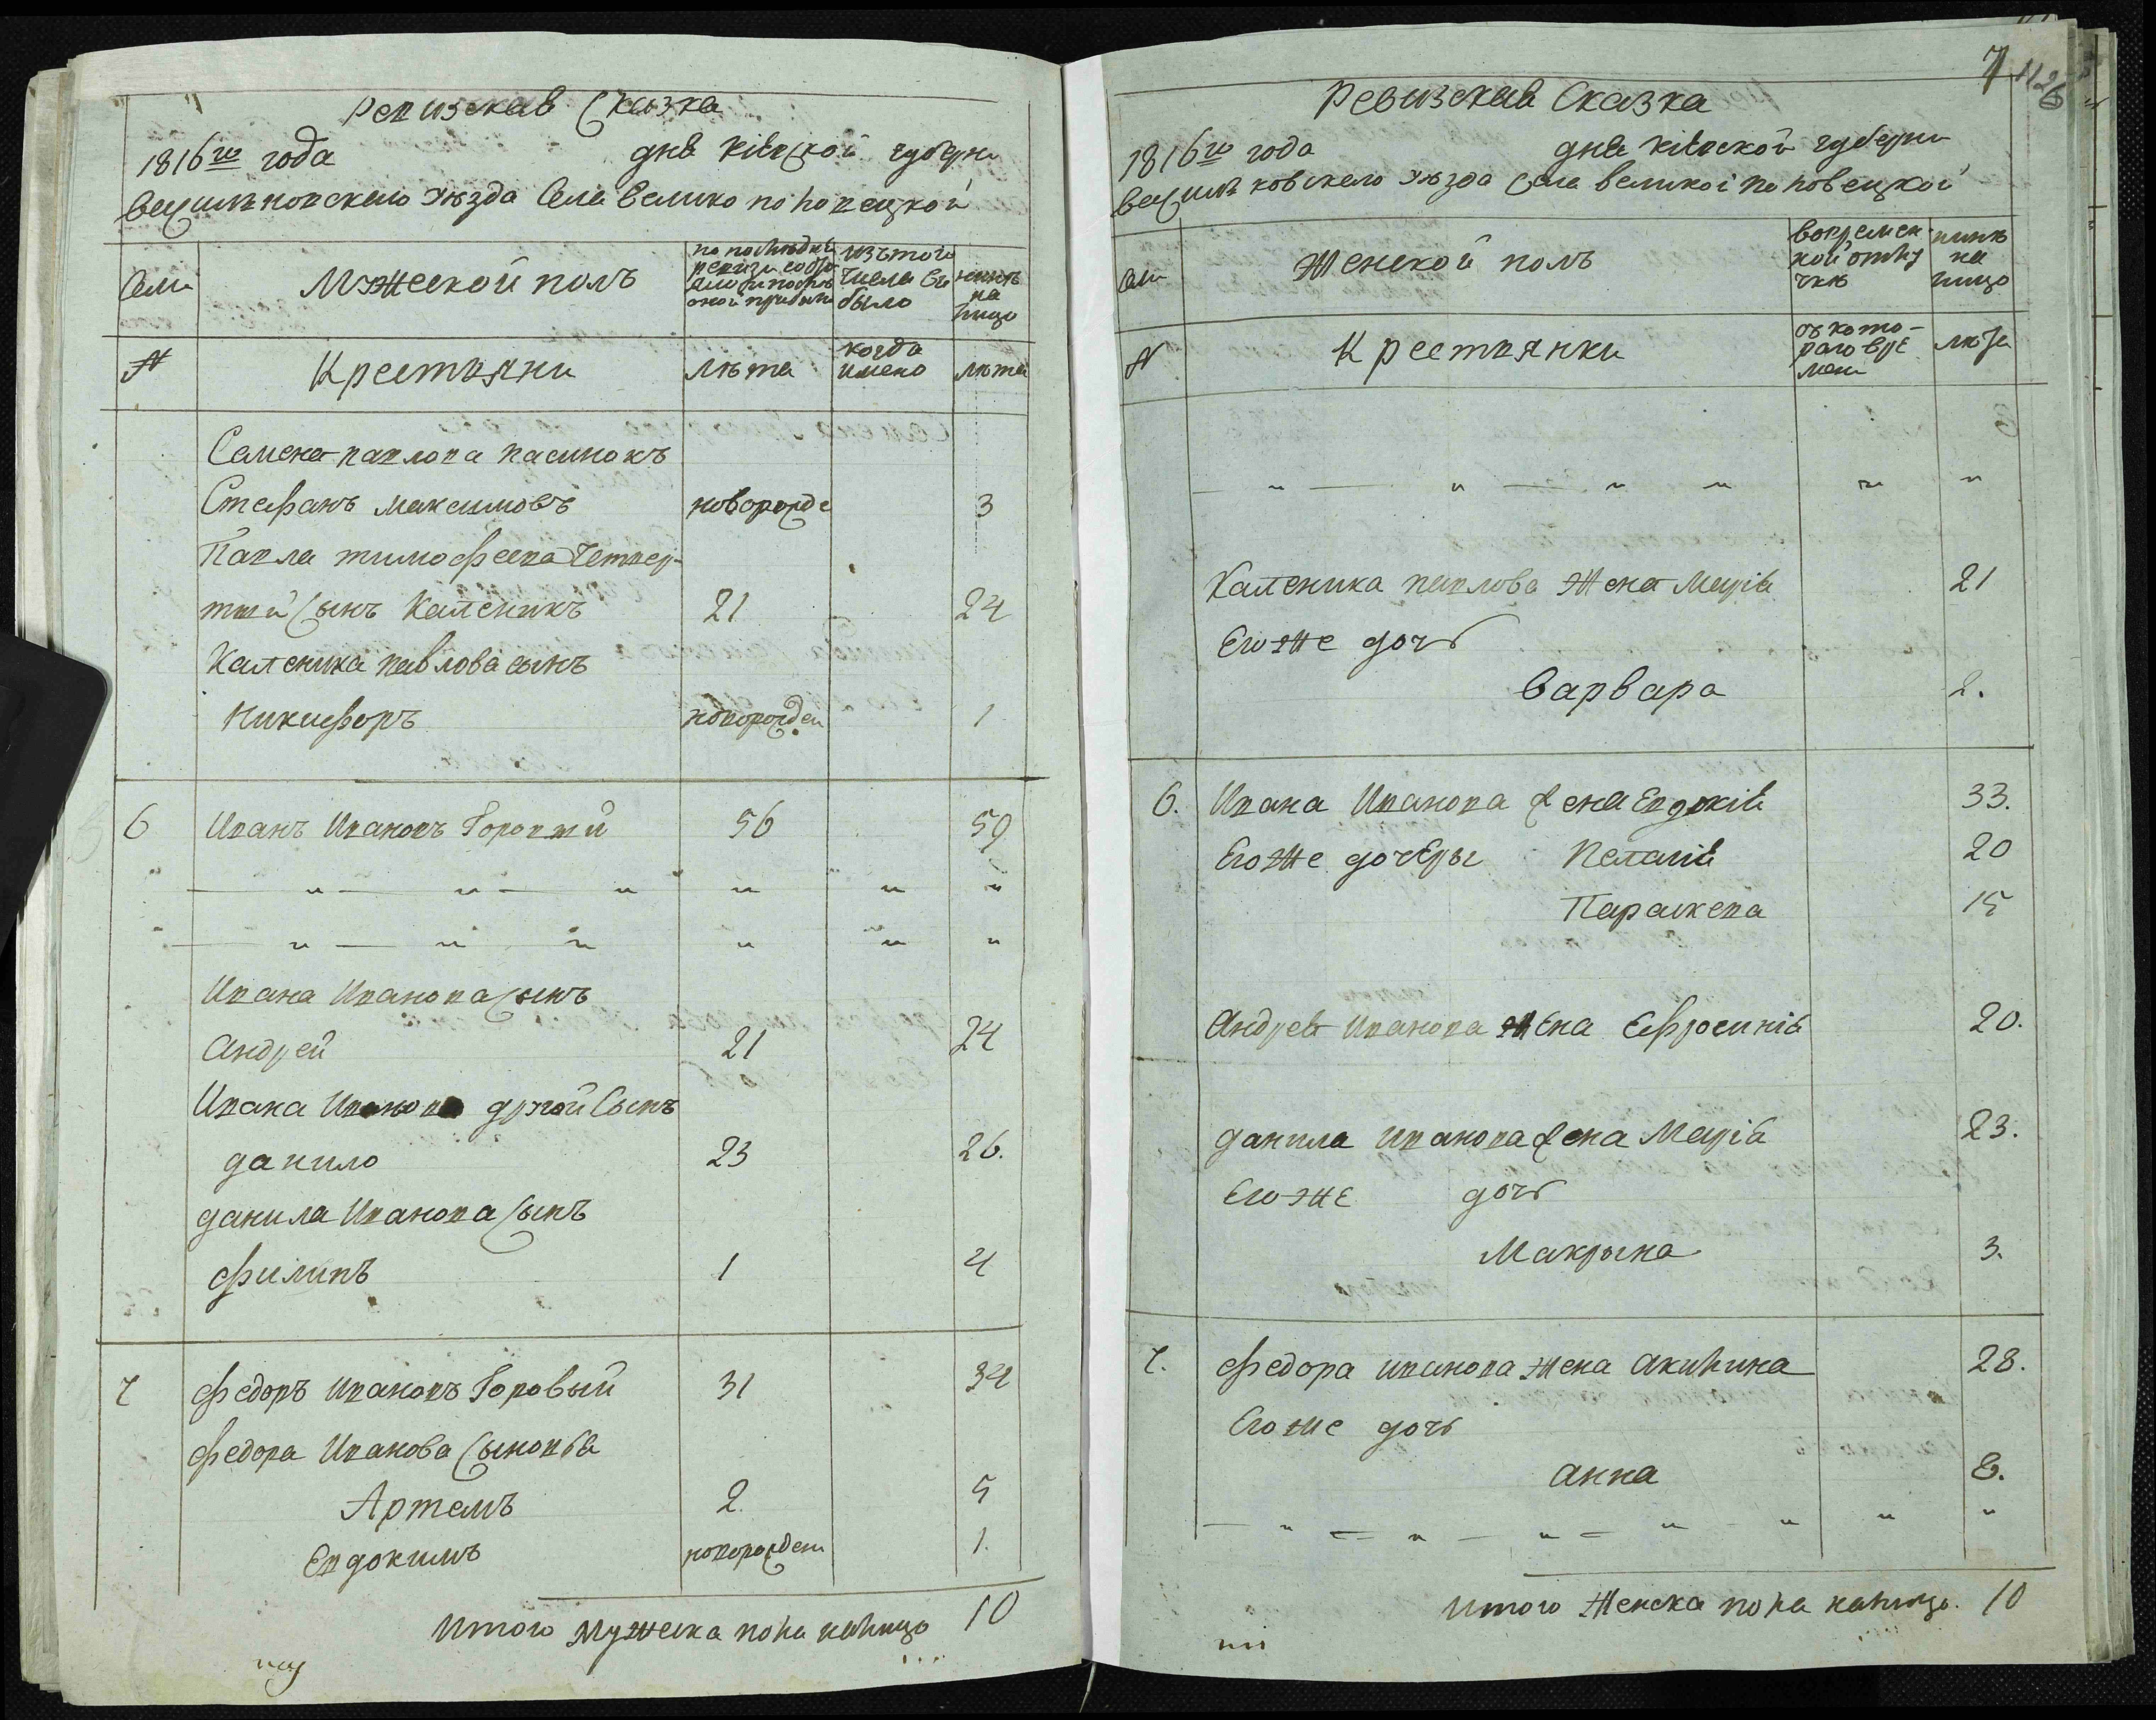 Ревизская Сказка
1816го года дня Кіевской губерни
Василъковскаго уѣзда Села Велико поповецкой
Семи
Мужеской полъ
по последней ревизи состояло и после оной прибыло
изъ того числа выбыло
нинѣ на лицо
№
Крестьяни
лѣта
когда имено
лѣта
Семена павлова пасинокъ
Стефанъ максимовъ новорожде 3
Павла тимофеева Четвер-
тий Сынъ Каленикъ 21 24
Каленика павлова сынъ
Никифоръ новорожден 1
6 Иванъ Ивановъ Горовий 56 59
— „ — „ — „ „ „ „
— „ — „ „ „ „ „
Ивана Иванова Сынъ
Андрей 21 24
Ивана Иванова другой Сынъ
данило 23 26.
данила Иванова Сынъ
Филипъ 1 4
7 Федоръ Ивановъ Горовый 31 34
Федора Иванова Сыновья
Артемъ 2. 5
Евдокимъ новорожден 1.
Итого Мужеска пола налицо 10
7
Ревизская Сказка
1816го года дня Кіевской губерни
Василъковскаго уѣзда Села великой поповецкой
Семи
Женской полъ
вовремен ной отлучкѣ
нинѣ на лицо
№
Крестьянки
съ кото-
раго вре
мени
лѣта
— „ — „ — „ „ „ „
Каленика павлова Жена Марія 21
Егоже дочь
Варвара 2.
6. Ивана Иванова жена Евдокія 33.
Егоже дочеры Пелагія 20
Параскева 15
Андрея Иванова жена Ефросинія 20.
данила иванова жена Марія 23.
Егоже дочь
Макрына 3.
7. Федора иванова жена Акилина 28.
Егоже дочь
анна 8.
— „ — „ — „ — „ „ „ „
Итого Женска пола налицо. 10